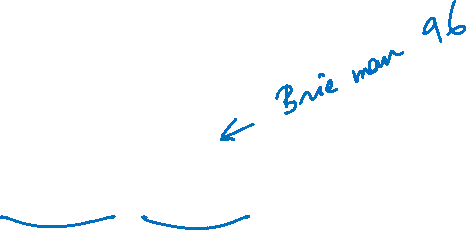 Brieman 96